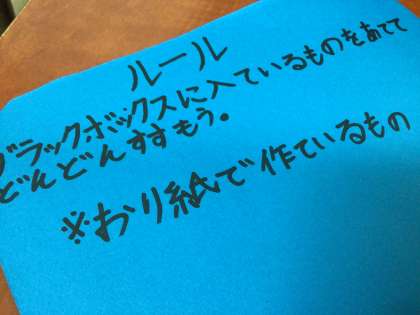 ルール
ブラックボックスに入ているものをあてて
どんどんすすもう。
※おり紙で作ているもの